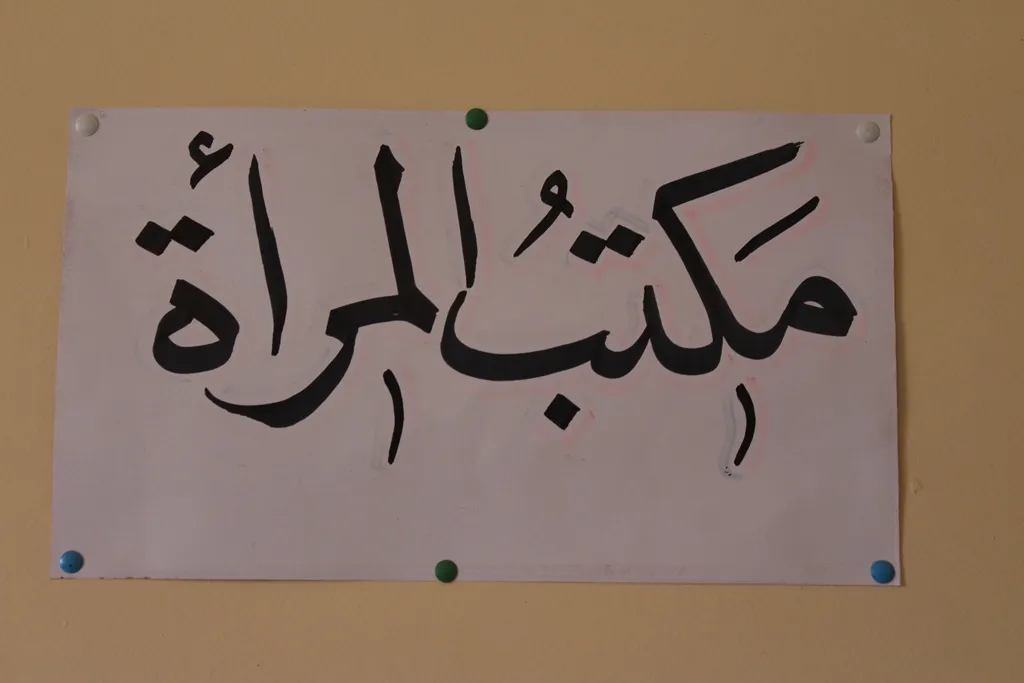 مكتبُ المرأة